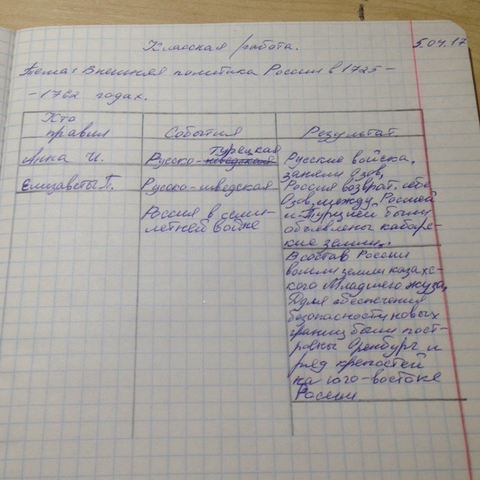 Классная работа.
5.04.17
Тема: Внешняя политика России в 1725-
-1762 годах.
Кто
правил
События
Результат.
Анна И.
турецкая
Русско-шведская
Русские войска,
заняли Азов,
Елизаветы П.
Русско-шведская
Россия возврат. себе
Азов, между Россией
и Турцией были
объявлены кабарс-
кие земли.
Россия в семи-
летней войне
В состав России
вошли земли казахс-
кого Младшего жуза,
Для обеспечения
безопасности новых
границ были пост-
ровны Оренбург и
ряд крепостей
на юго-востоке
России